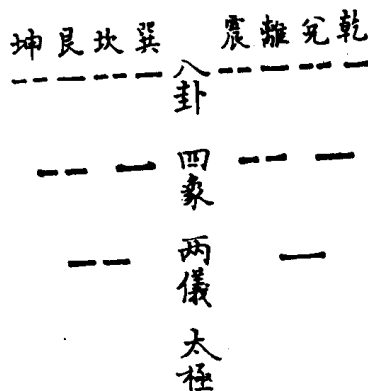 坤艮坎巽 震離兌乾
八卦
四象
两儀
太極